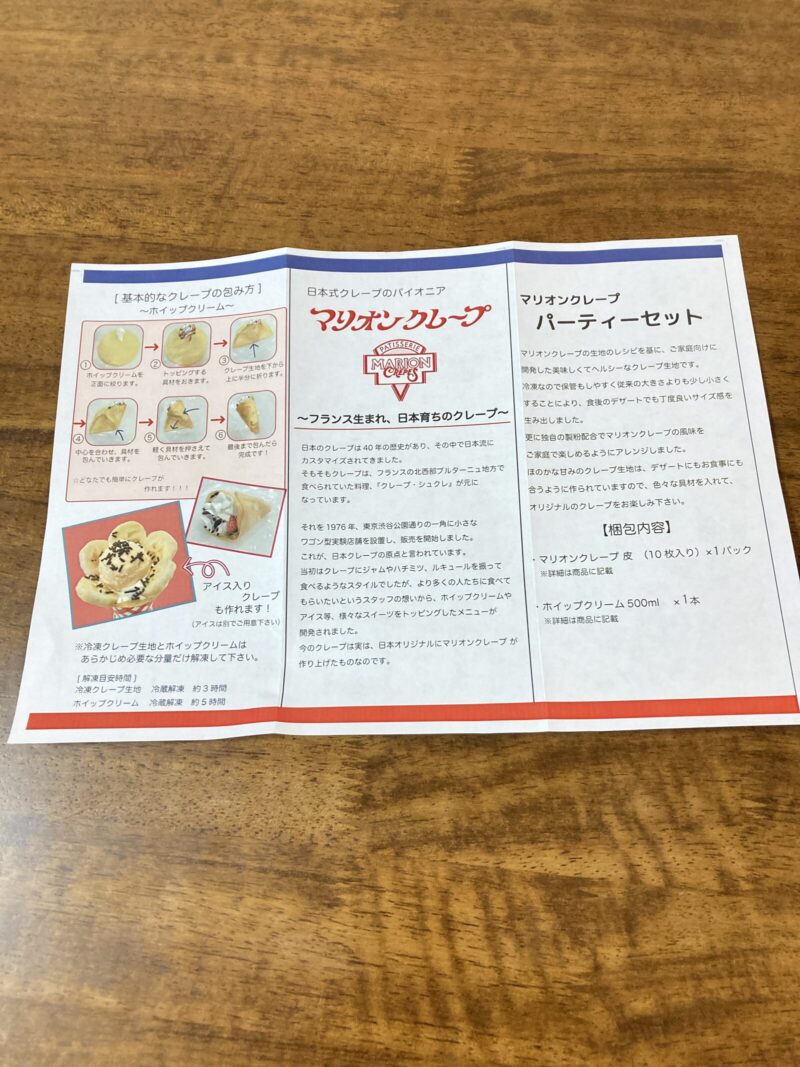 [ 基本的なクレープの包み方 ]
～ホイップクリーム～
①
ホイップクリームを
正面に絞ります。
②
トッピングする
具材をおきます。
③
クレープ生地を下から
上に半分に折ります。
④
中心を合わせ、具材を
包んでいきます。
⑤
軽く具材を押さえて
包んでいきます。
⑥
最後まで包んだら
完成です！
☆どなたでも簡単にクレープが
作れます！！！
アイス入り
クレープ
も作れます！
(アイスは別でご用意下さい)
※冷凍クレープ生地とホイップクリームは
あらかじめ必要な分量だけ解凍して下さい。
[ 解凍目安時間 ]
冷凍クレープ生地 冷蔵解凍 約３時間
ホイップクリーム 冷蔵解凍 約５時間
日本式クレープのパイオニア
マリオンクレープ
PATISSERIE
MARION
CRÊPES
～フランス生まれ、日本育ちのクレープ～
日本のクレープは 40 年の歴史があり、その中で日本流に
カスタマイズされてきました。
そもそもクレープは、フランスの北西部ブルターニュ地方で
食べられていた料理、「クレープ・シュクレ」が元に
なっています。
それを 1976 年、東京渋谷公園通りの一角に小さな
ワゴン型実験店舗を設置し、販売を開始しました。
これが、日本クレープの原点と言われています。
当初はクレープにジャムやハチミツ、ルキュールを振って
食べるようなスタイルでしたが、より多くの人たちに食べて
もらいたいというスタッフの想いから、ホイップクリームや
アイス等、様々なスイーツをトッピングしたメニューが
開発されました。
今のクレープは実は、日本オリジナルにマリオンクレープ が
作り上げたものなのです。
マリオンクレープ
パーティーセット
マリオンクレープの生地のレシピを基に、ご家庭向けに
開発した美味しくてヘルシーなクレープ生地です。
冷凍なので保管もしやすく従来の大きさよりも少し小さく
することにより、食後のデザートでも丁度良いサイズ感を
生み出しました。
更に独自の製粉配合でマリオンクレープの風味を
ご家庭で楽しめるようにアレンジしました。
ほのかな甘みのクレープ生地は、デザートにもお食事にも
合うように作られていますので、色々な具材を入れて、
オリジナルのクレープをお楽しみ下さい。
【梱包内容】
・マリオンクレープ 皮 （10 枚入り）×１パック
※詳細は商品に記載
・ホイップクリーム 500ml ×１本
※詳細は商品に記載